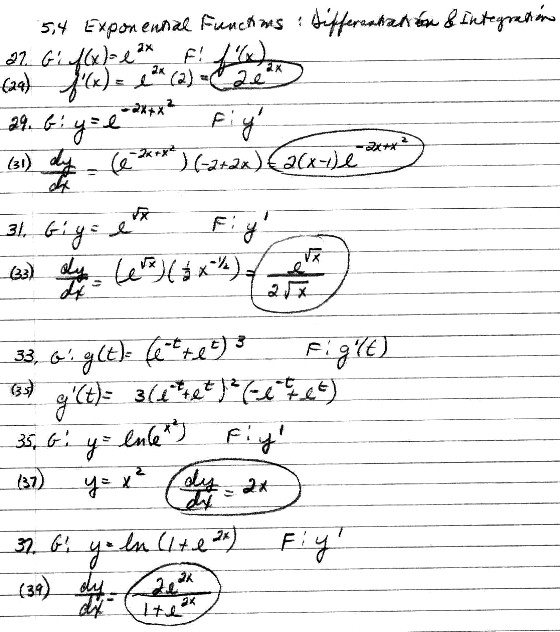 5.4 Exponential Functions : Differentiation & Integration
27. G: f(x) = e^{2x} F: f'(x)
(29) f'(x) = e^{2x} (2) = 2e^{2x}
29. G: y = e^{-2x+x^2} F: y'
(31) dy/dx = (e^{-2x+x^2})(-2+2x) = 2(x-1)e^{-2x+x^2}
31. G: y = e^{√x} F: y'
(33) dy/dx = (e^{√x})(1/2 x^{-1/2}) = e^{√x}/2√x
33. G: g(t) = (e^{-t}+e^t)^3 F: g'(t)
(35) g'(t) = 3(e^{-t}+e^t)^2(-e^{-t}+e^t)
35. G: y = ln(e^{x^2}) F: y'
(37) y = x^2 dy/dx = 2x
37. G: y = ln(1+e^{2x}) F: y'
(39) dy/dx = 2e^{2x}/1+e^{2x}